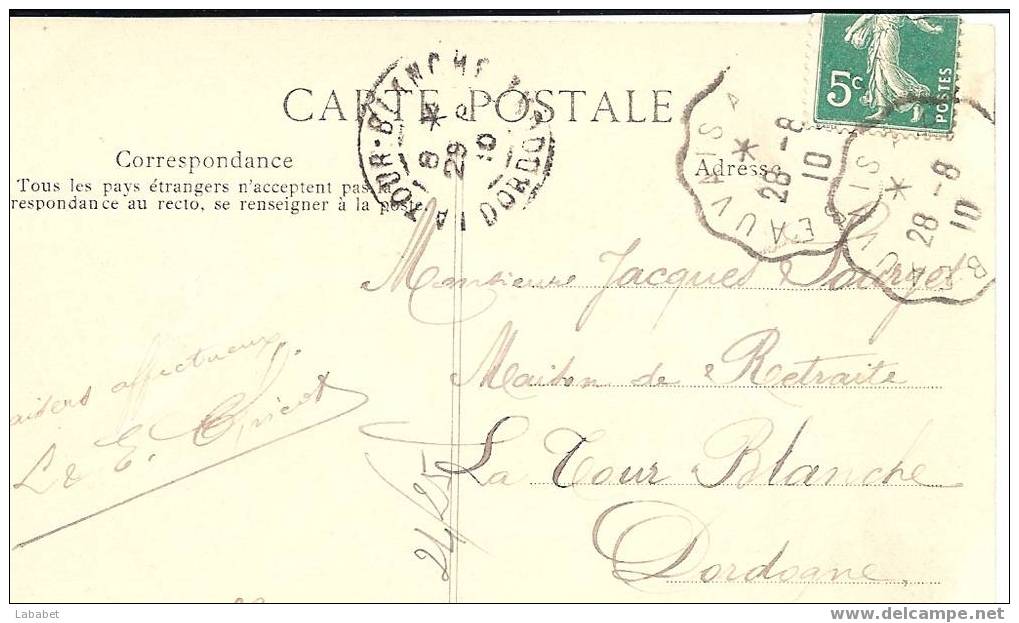 CARTE POSTALE
Correspondance
Tous les pays étrangers n'acceptent pas la
respondance au recto, se renseigner à la poste.
Adresse
5c
POSTES
LA TOUR-BLANCHE
DORDOGNE
8
29
10
BEAUVAIS
28-8
10
BEAUVAIS
28-8
10
Monsieur Jacques
Maison de Retraite
La Tour Blanche
Dordogne
aisers affectueux
L & E.
24/25
Lababet
http://www.delcampe.net